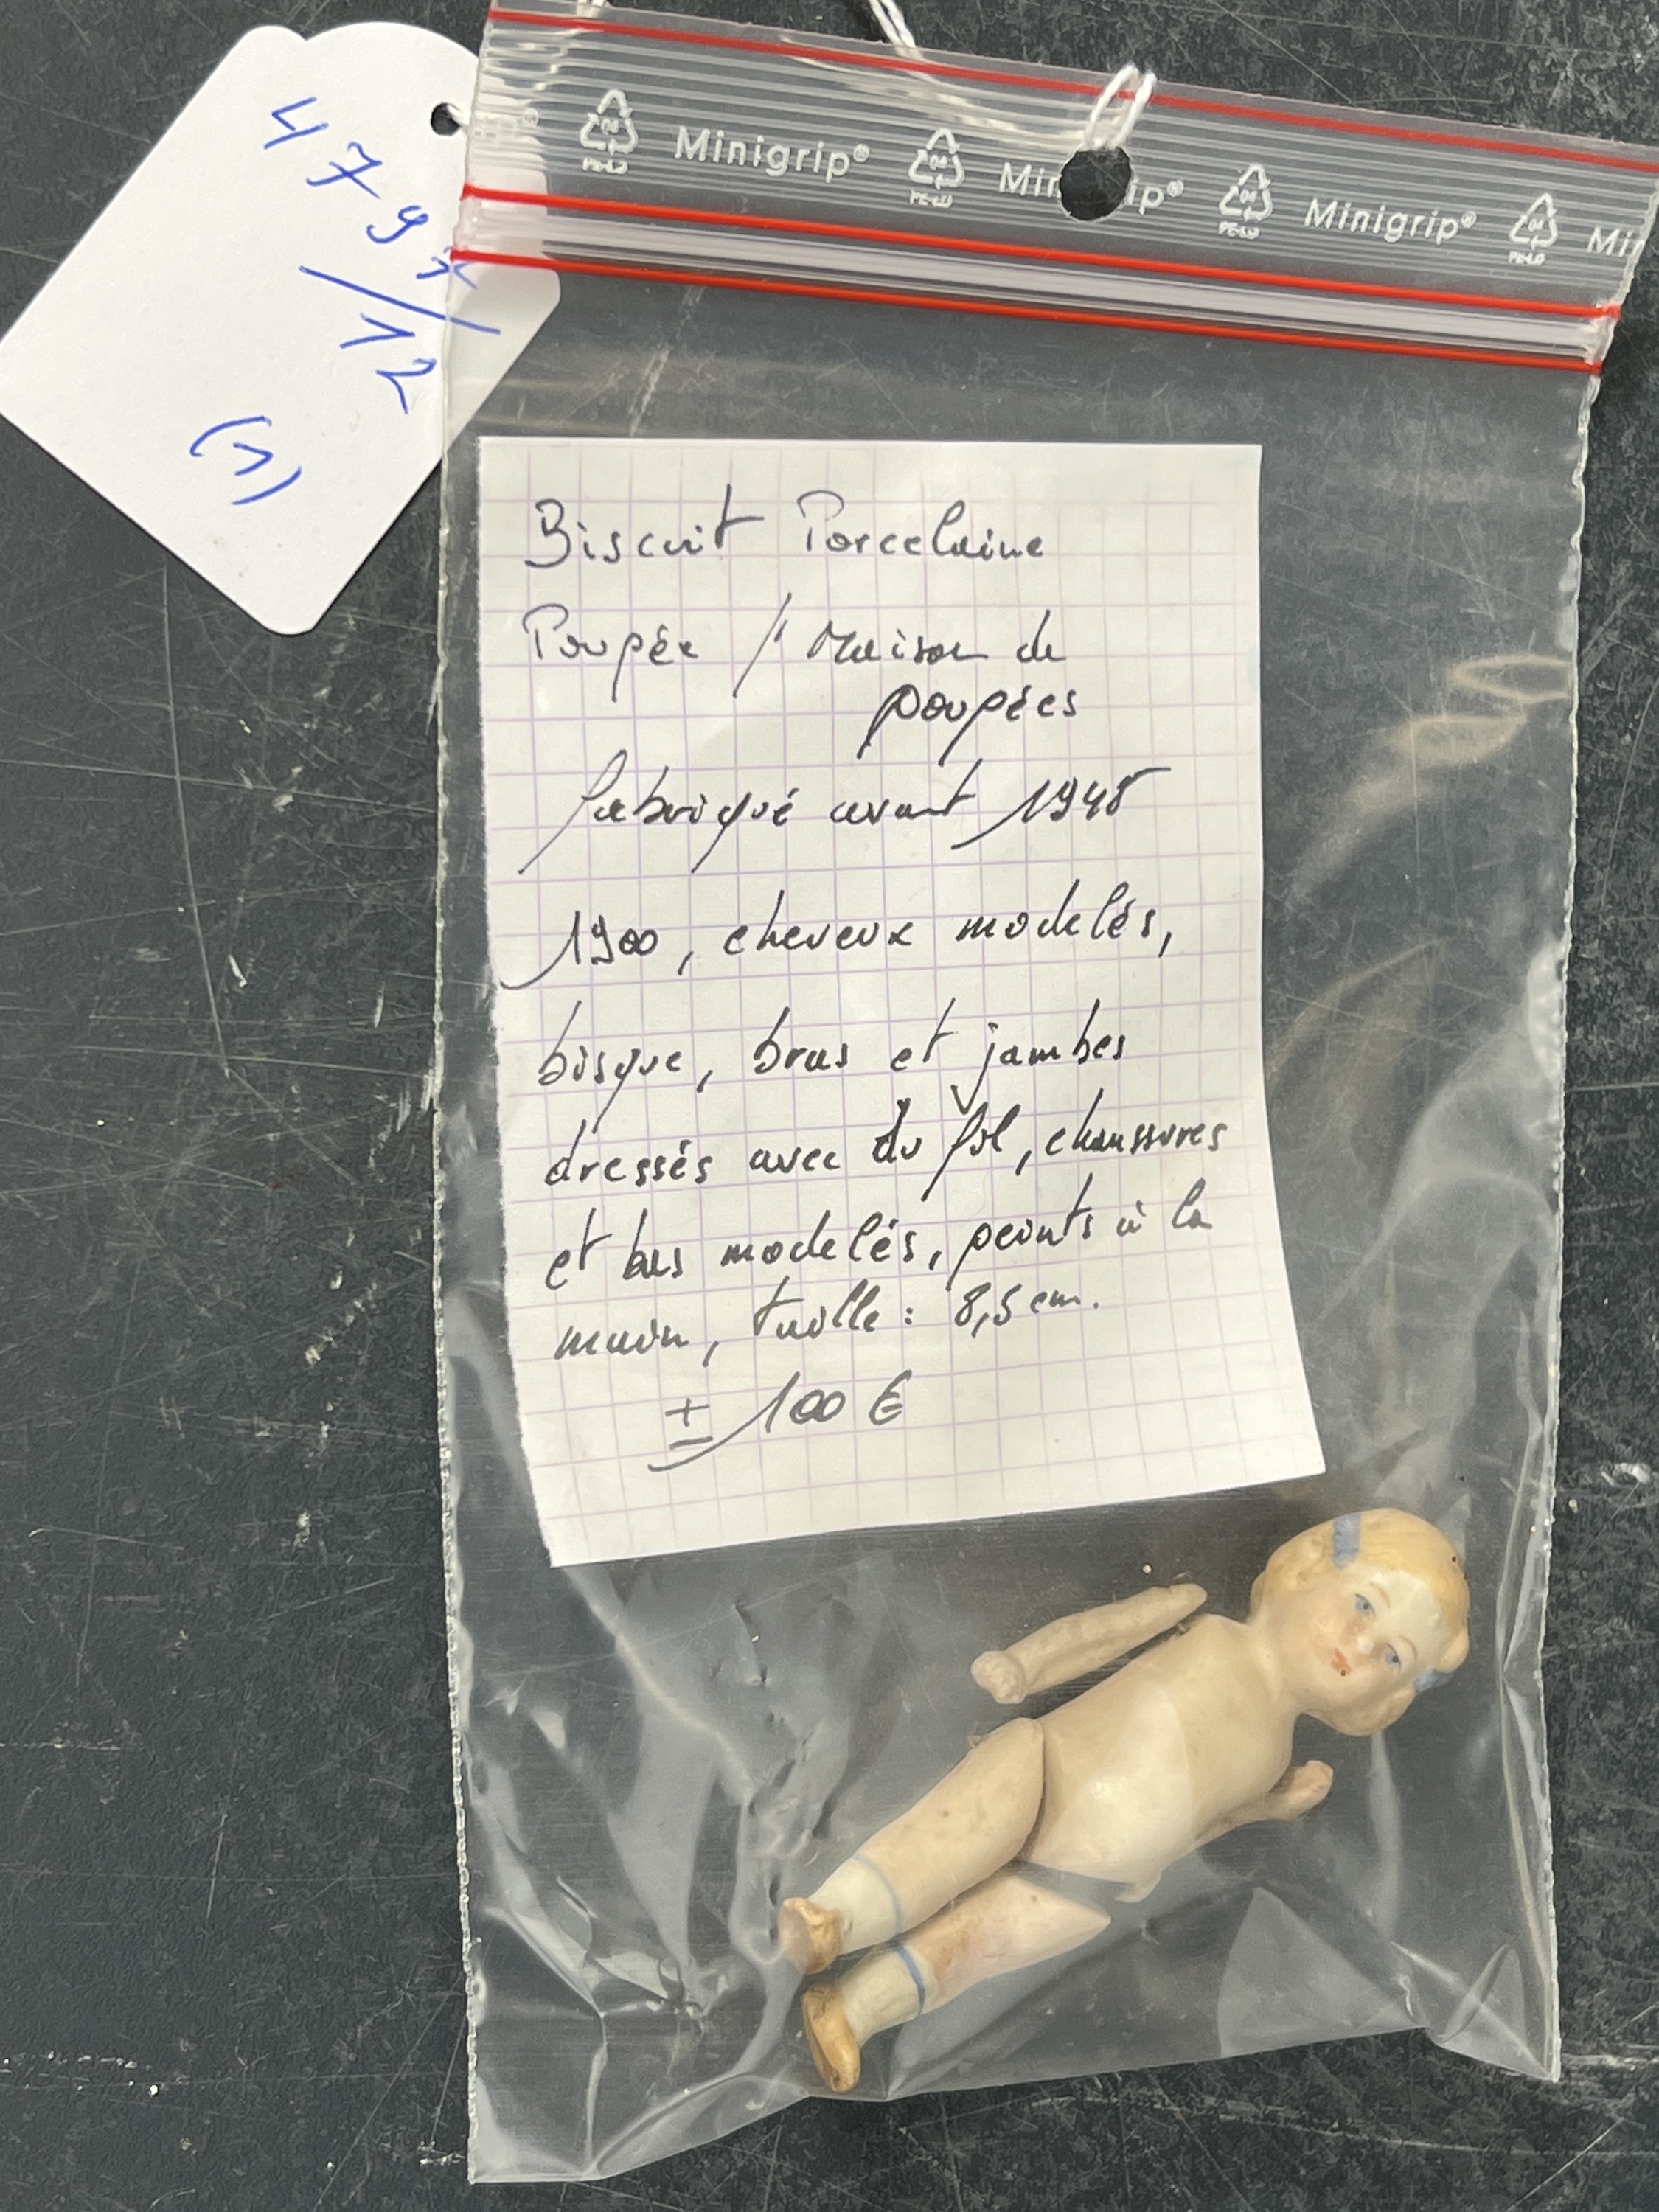 4791
/12
(1)
Minigrip® Minigrip® Minigrip®
Biscuit Porcelaine
Poupée / Maison de
poupées
fabriqué avant 1945
1900, cheveux modelés,
bisque, bras et jambes
dressés avec du fil, chaussures
et bas modelés, peints à la
main, taille : 8,5 cm.
± 100 €